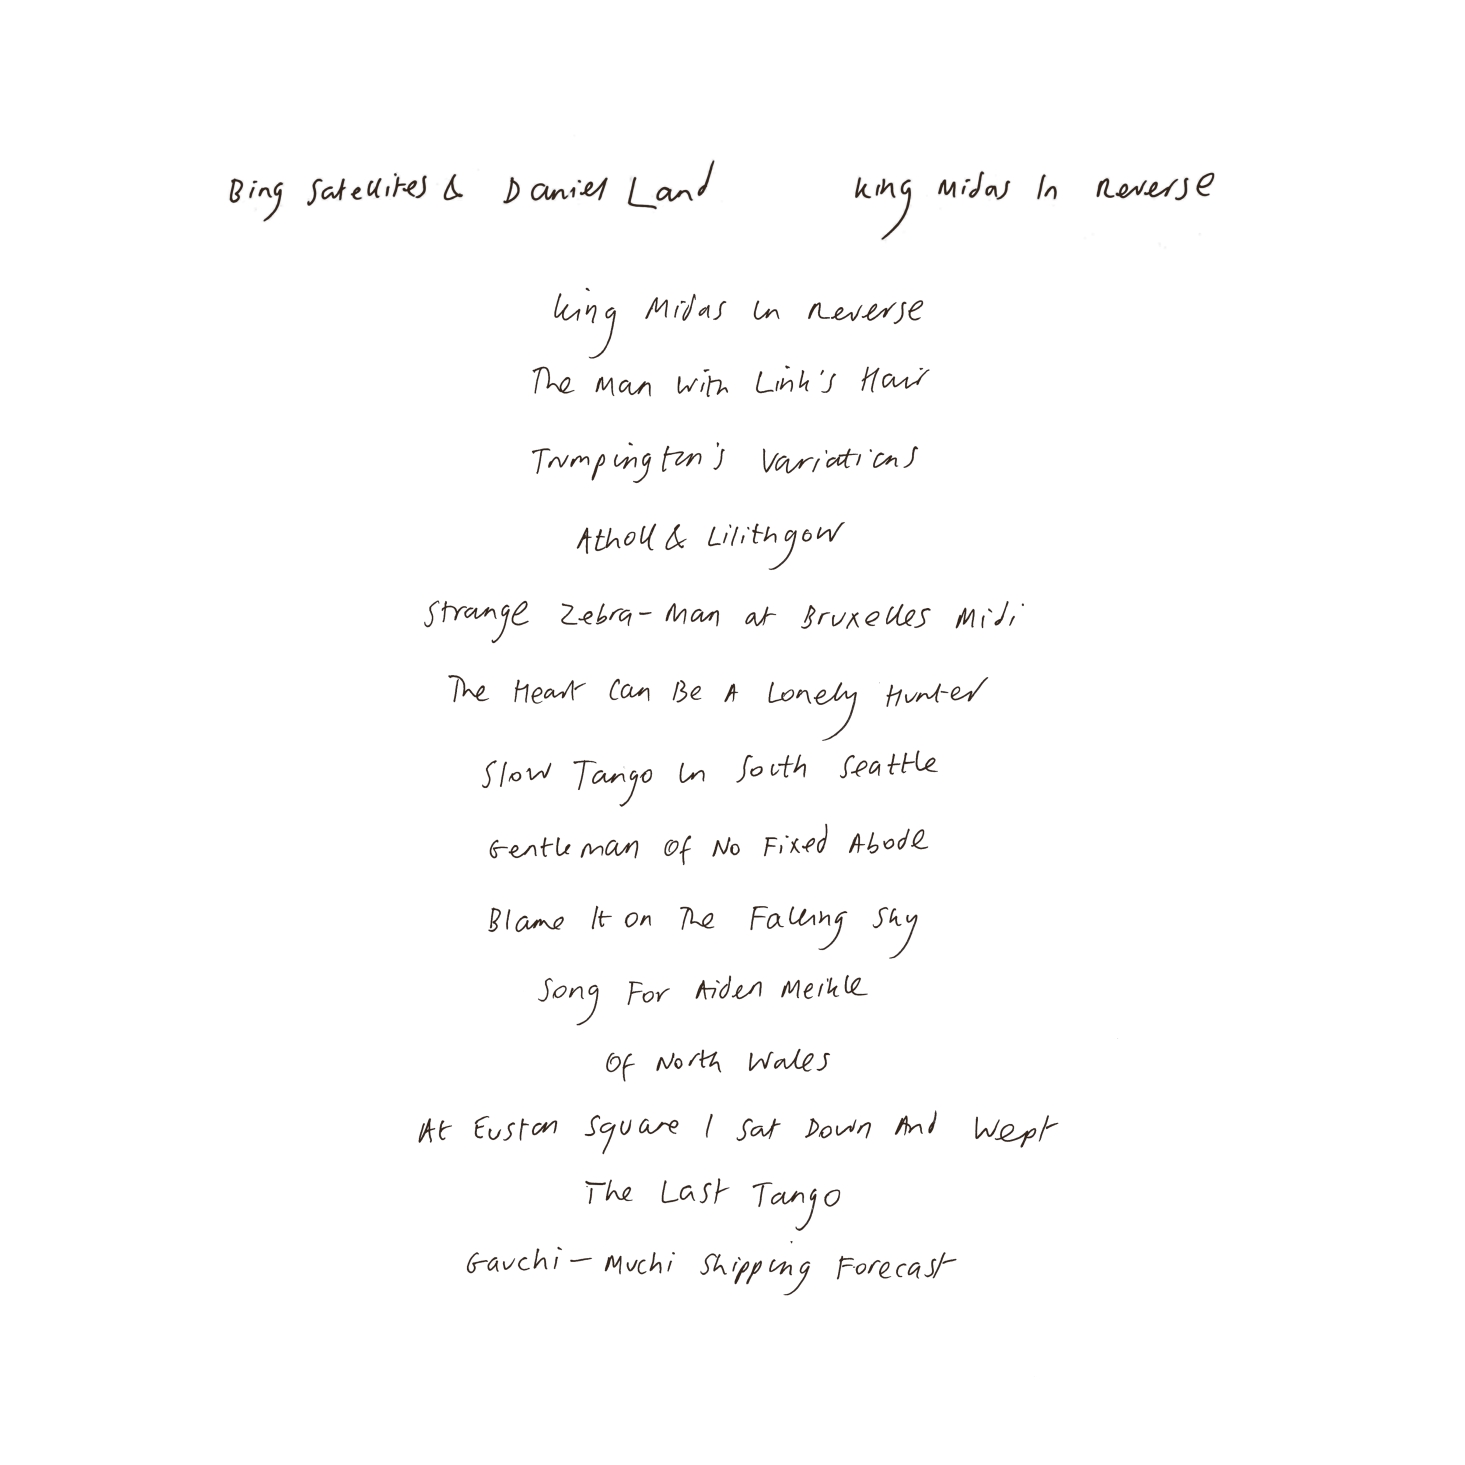 Bing Satellites & Daniel Land King Midas In Reverse
King Midas In Reverse
The Man With Link's Hair
Trumpington's Variations
Atholl & Lilithgow
Strange Zebra-Man at Bruxelles Midi
The Heart Can Be A Lonely Hunter
Slow Tango In South Seattle
Gentleman Of No Fixed Abode
Blame It on The Falling Sky
Song For Aiden Meikle
Of North Wales
At Euston Square I Sat Down And Wept
The Last Tango
Gauchi-Muchi Shipping Forecast